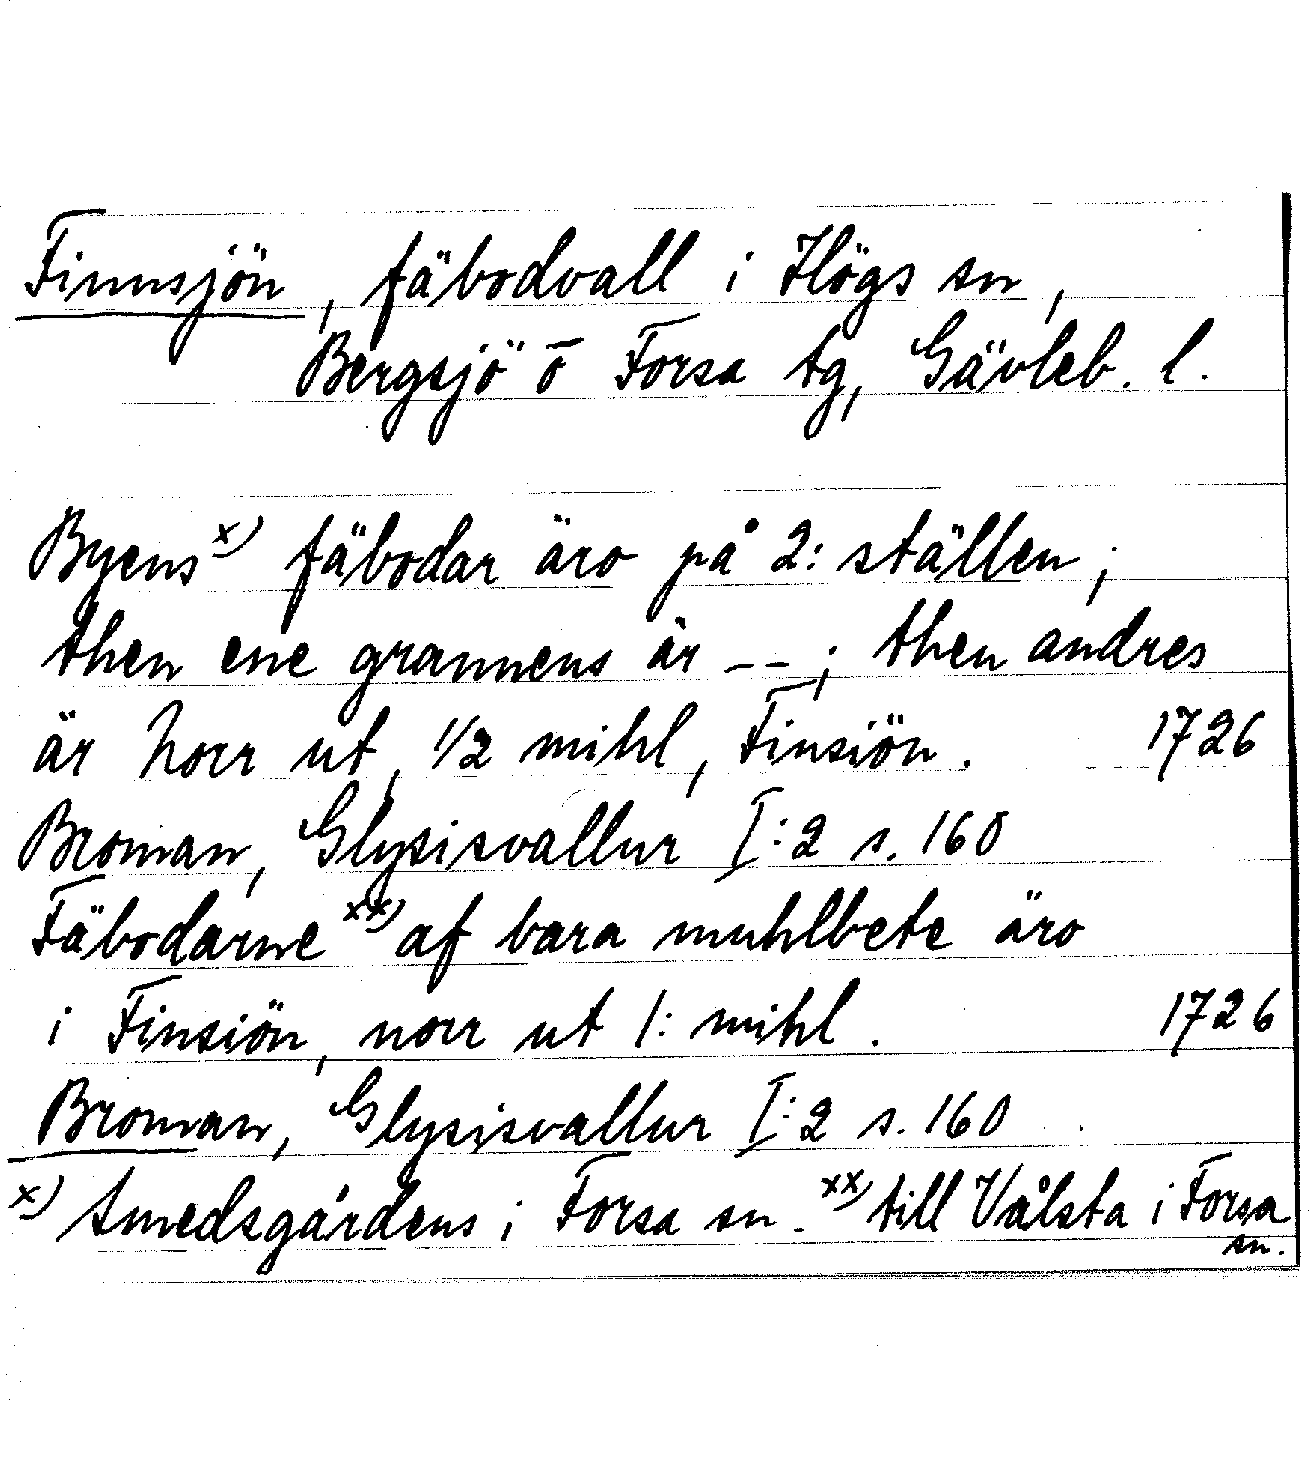 Finnsjön, fäbodvall i Högs sn,
Bergsjö o Forsa tg, Gävleb. l.
Byens x) fäbodar äro på 2: ställen;
then ene grannens är --; then andres
är norr ut, 1/2 mihl, Finsiön. 1726
Broman, Glysisvallur I:2 s. 160
Fäbodarne xx) af bara muhlbete äro
i Finsiön, norr ut 1: mihl. 1726
Broman, Glysisvallur I:2 s. 160
x) Smedsgårdens i Forsa sn. xx) till Vålsta i Forsa
sn.